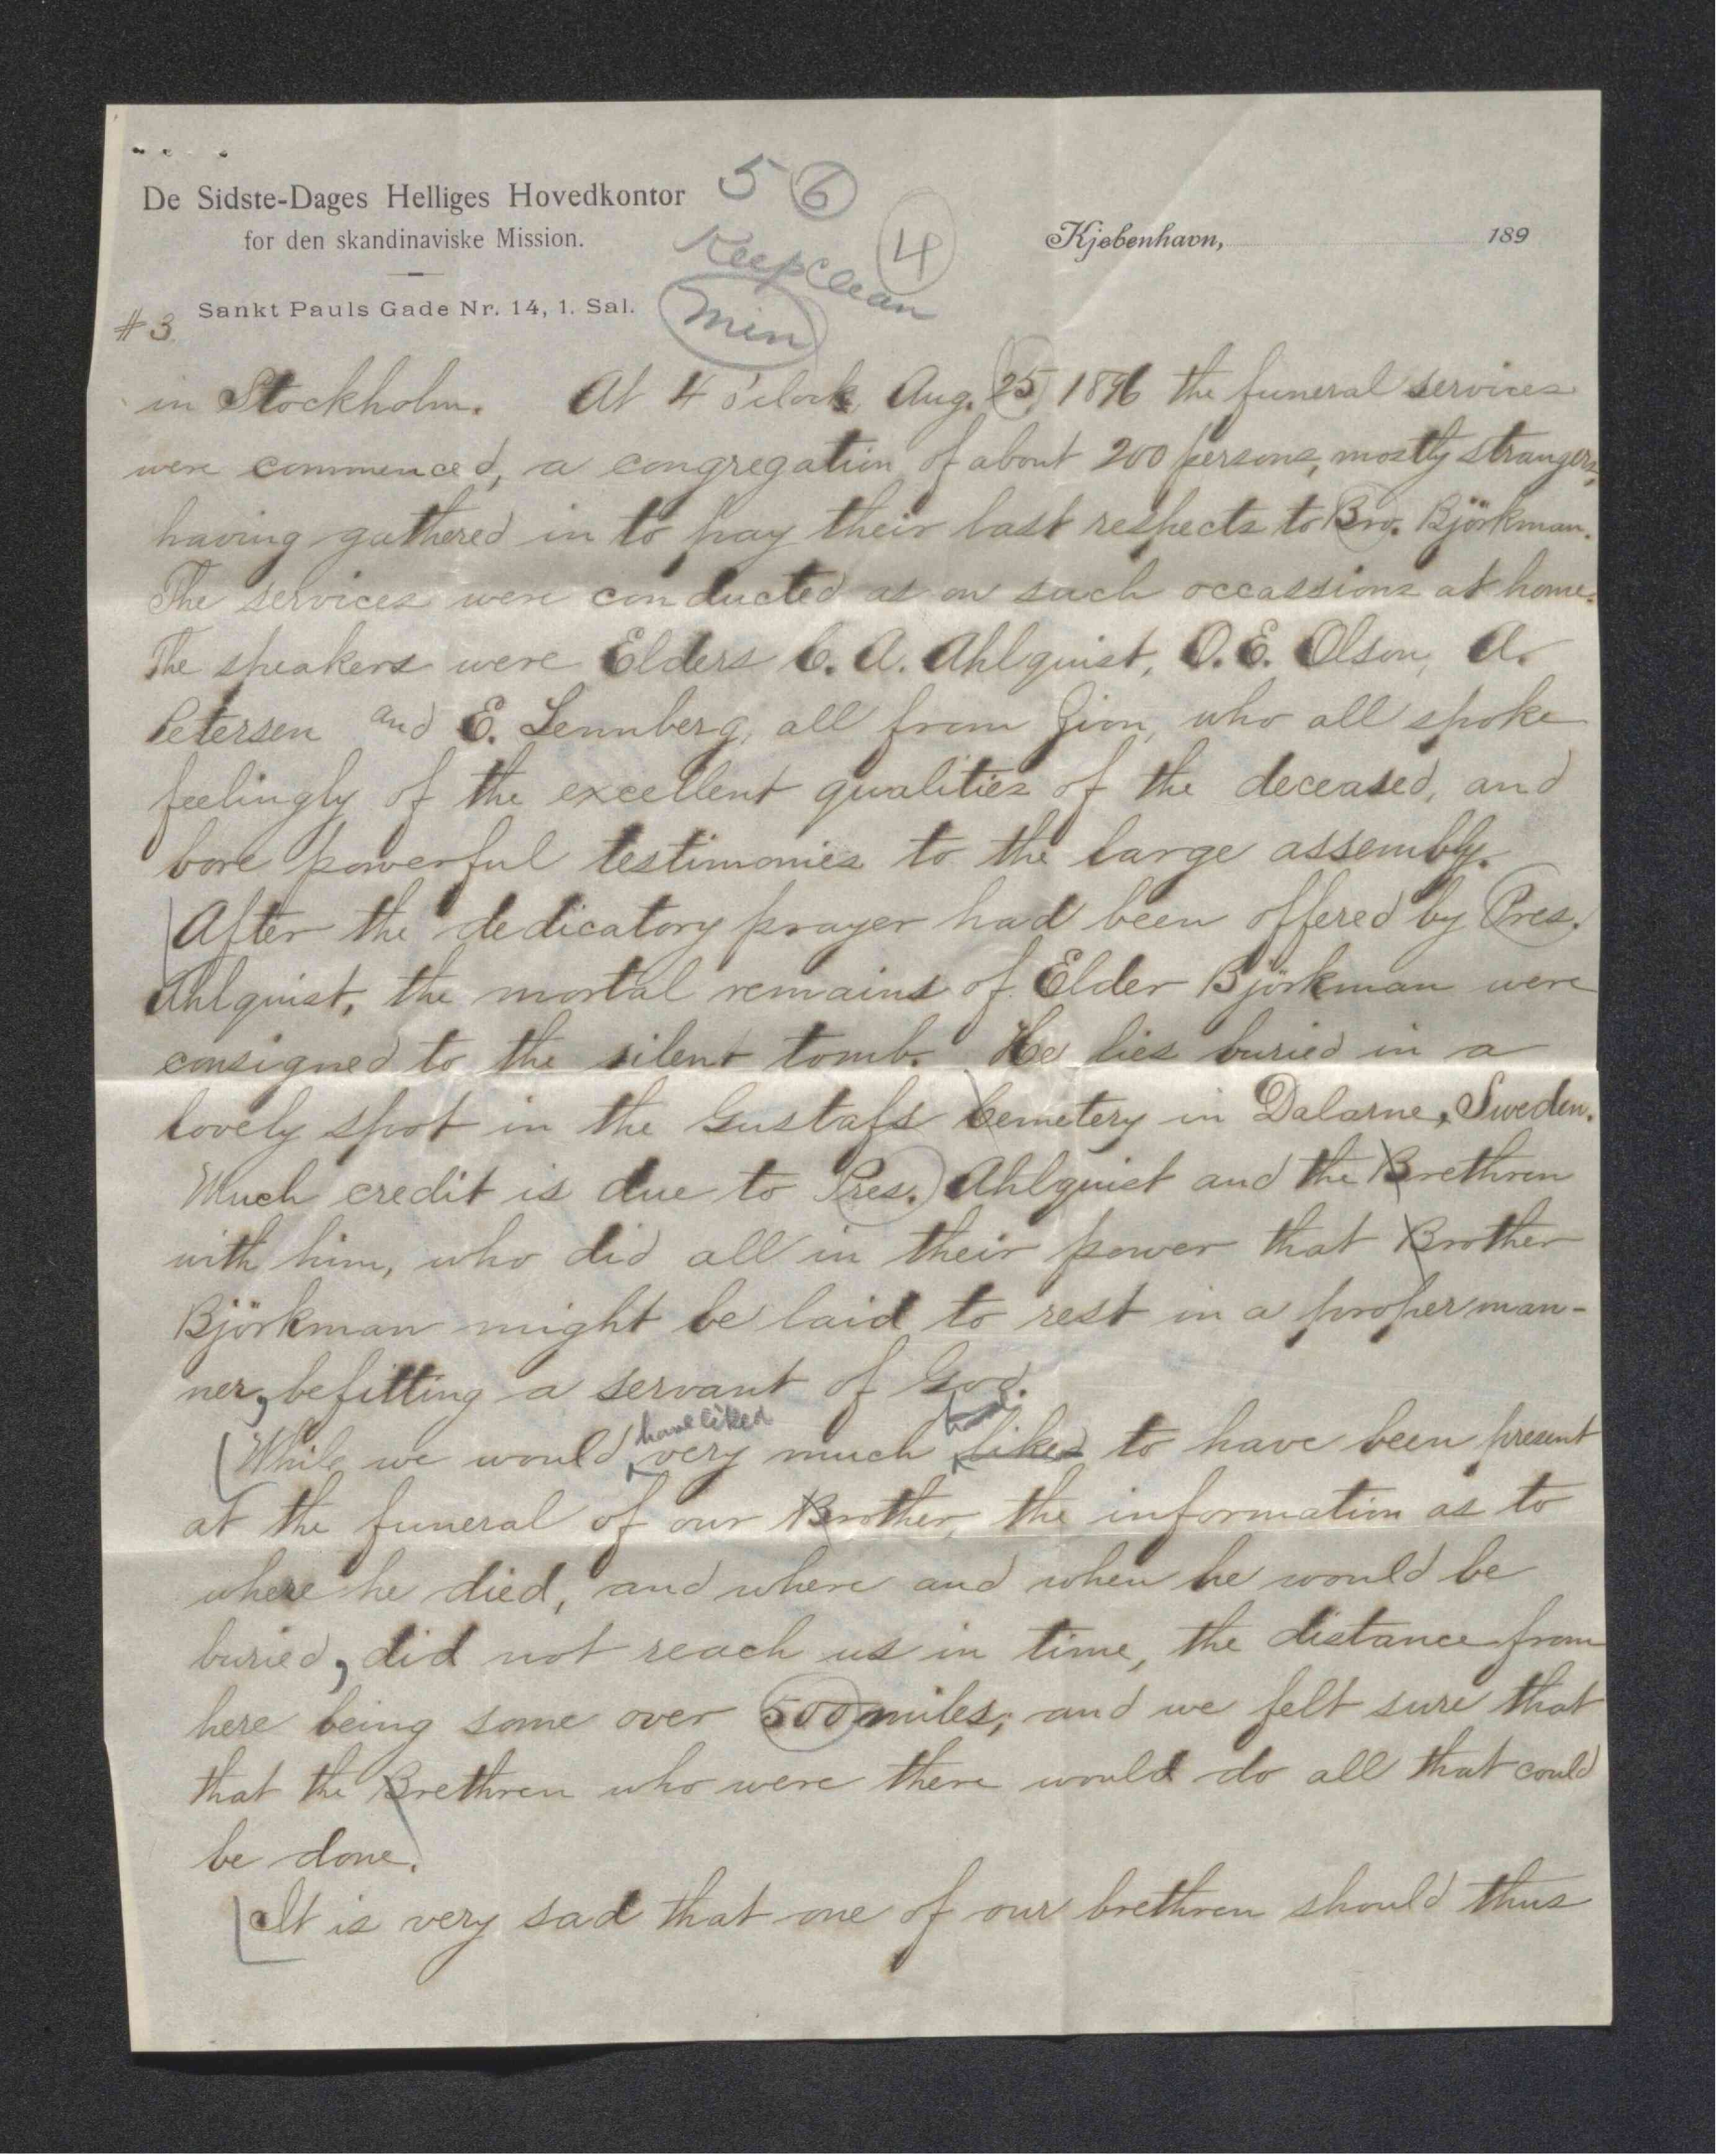 De Sidste-Dages Helliges Hovedkontor
for den skandinaviske Mission.
Sankt Pauls Gade Nr. 14, 1. Sal.
5 6
Keep clean
4
min
Kjøbenhavn, 189
#3
in Stockholm. At 4 o'clock, Aug. 25, 1896 the funeral services
were commenced, a congregation of about 200 persons, mostly strangers,
having gathered in to pay their last respects to Bro. Björkman.
The services were conducted as on such occassions at home.
The speakers were Elders C. A. Ahlquist, O. E. Olson, A.
Petersen and E. Lennberg, all from Zion, who all spoke
feelingly of the excellent qualities of the deceased, and
bore powerful testimonies to the large assembly.
After the dedicatory prayer had been offered by Pres.
Ahlquist, the mortal remains of Elder Björkman were
consigned to the silent tomb. He lies buried in a
lovely spot in the Gustafs Cemetery in Dalarne, Sweden.
Much credit is due to Pres. Ahlquist and the Brethren
with him, who did all in their power that Brother
Björkman might be laid to rest in a proper man-
ner, befitting a servant of God.
have liked
While we would very much liked to have been present
at the funeral of our Brother, the information as to
where he died, and where and when he would be
buried, did not reach us in time, the distance from
here being some over 500 miles; and we felt sure that
that the Brethren who were there would do all that could
be done.
It is very sad that one of our brethren should thus